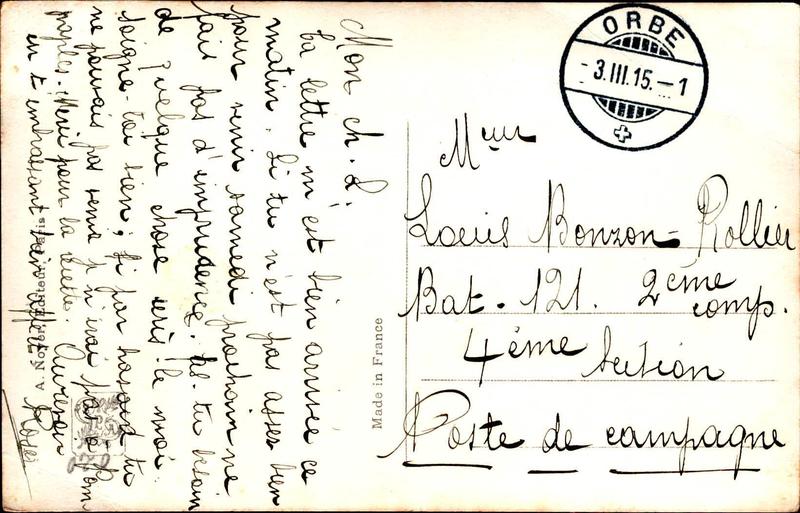 Mon ch. L.
ta lettre m'est bien arrivée ce
matin. Si tu n'est pas assez bien
pour venir samedi prochain ne
fais pas d'imprudence. As-tu besoin
de quelque chose écris-le moi.
soigne-toi bien; si par hasard tu
ne pouvais pas venir j'irai
Merci pour la
en t'embrassant bien
Made in France
A. Noyer
ORBE
-3.III.15.-1
Meur
Louis Bonzon-Rollier
Bat. 121. 2ème
comp.
4ème Section
Poste de campagne